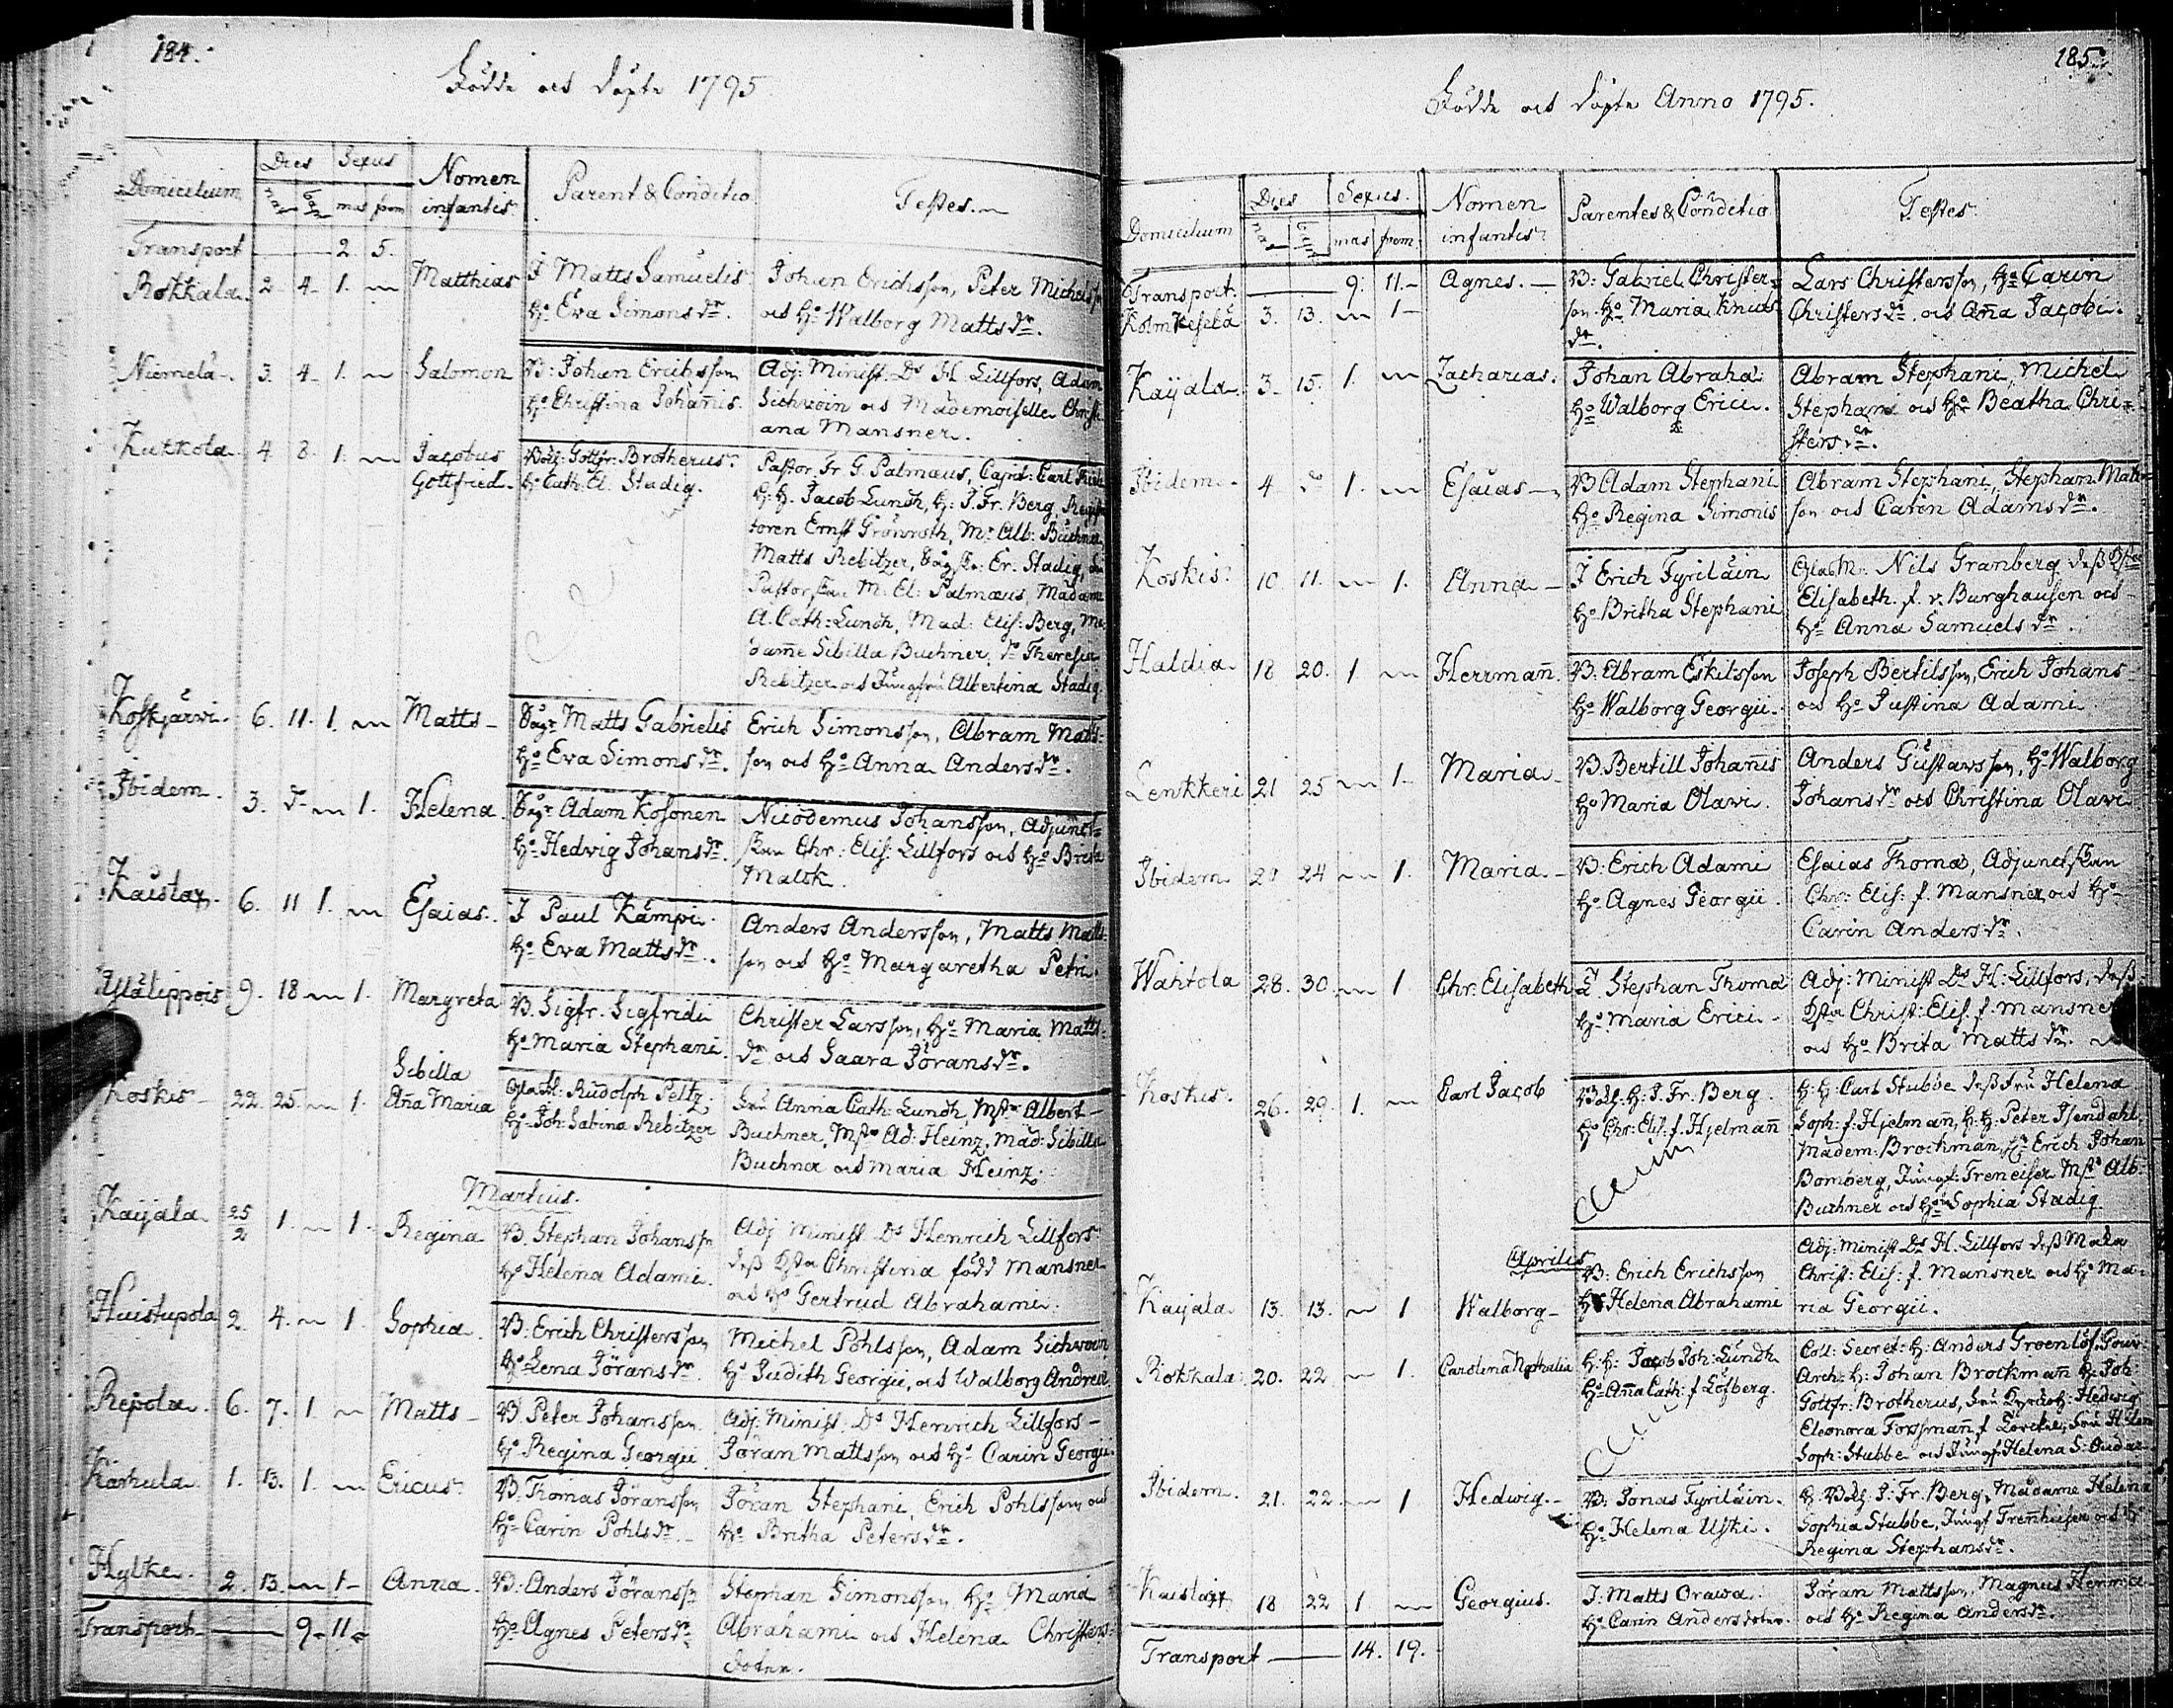 184.
Födde och döpte 1795
Domicilium
Dies
Sexus
Nomen infantis
Parent & Conditio
Testes.
nat bapt mas foem
Transport 2. 5.
Rokkala 2. 4. 1. Matthias
I Matts Samuelis
Hº Eva Simons dr.
Johan Erichsson, Peter Michelss
och Hº Walborg Matts dr.
Niemelä 3. 4. 1. Salomon
B: Johan Erichsson
Hº Christina Johannis.
Adj: Minist. Ds H Lillfors, Adam
Sichwoin och Mademoiselle Christi
ana Mansner.
Kukkola 4 8. 1. Jacobus
Gottfried.
Gottfr: Brotherus.
H: Cath. El. Stadig.
Pastor Fr G. Palmæus, Capit: Carl
H. H. Jacob Lundh, H: J. Fr. Berg,
toren Ernst Grönroth, Mr Alb: Buchner
Matts Rebitzer, Er. Stadig,
M: El: Palmæus, Madame
A. Cath: Lundh, Mad: Elis: Berg, Ma
dame Sibilla Buchner, do Theresia
Rebitzer och Jungfru Albertina Stadig.
Koskjärvi 6. 11. 1. Matts
Matts Gabrielis
Hº Eva Simons dr.
Erich Simonsson, Abram Matts
son och Hº Anna Anders dr.
Ibidem. 3. do 1. Helena.
Adam Kosonen
Hº Hedvig Johans dr.
Nicodemus Johansson, Adjuncts
Chr: Elis: Lillfors och Hº Brita
Malsk.
Kaislax. 6. 11 1. Esaias.
I Paul Kämpi.
Hº Eva Matts dr.
Anders Andersson, Matts Matts
son och Hº Margaretha Petri.
9. 18 1. Margreta
B. Sigfr. Sigfridi
Hº Maria Stephani.
Christer Larsson, Hº Maria Matts
dr och Saara Jörans dr.
Koskis 22. 25. 1. Sibilla
Aña Maria
Rudolph Peltz.
Hº Joh: Sabina Rebitzer
Fru Anna Cath: Lundh, Mstr Albert
Buchner, Mstr Ad: Heinz, Mad: Sibilla
Buchner och Maria Heinz.
Martius.
Kaijala 25/2 1. 1. Regina
B. Stephan Johanss
Hº Helena Adami.
Adj Minist Ds Henrich Lillfors
dess Christina född Mansner
och Hº Gertrud Abrahami.
Huistupola 2. 4. 1. Sophia.
B: Erich Christersson
Hº Lena Jörans dr.
Michel Pohlsson, Adam Sichvoin
Hº Judith Georgii, och Walborg Andreæ
Repola. 6. 7. 1. Matts
B. Peter Johansson
Hº Regina Georgii
Adj: Minist: Ds Henrich Lillfors
Jöran Mattsson och Hº Carin Georgii.
Karhula 1. 13. 1. Ericus
B. Thomas Jöransson
Hº Carin Pohls dr.
Jöran Stephani, Erich Pohlsson och
Hº Britha Peters dr.
Hylke. 2. 13. 1. Anna.
B: Anders Jöranss
Hº Agnes Peters dr
Stephan Simonsson, Hº Maria
Abrahami och Helena Christers
doter.
Transport 9. 11.
185.
Födde och döpte Anno 1795.
Domicilium
Dies
Sexus.
Nomen infantis
Parentes & Conditio
Testes
nat bapt mas foem
Transport. 9. 11.
Kolmikesälä 3. 13. 1. Agnes.
B: Gabriel Christer
son Hº Maria Knuts
dr.
Lars Christersson, Hº Carin
Christers dr. och Aña Jacobi.
Kaijala 3. 15. 1. Zacharias.
Johan Abraha
Hº Walborg Erici.
Abram Stephani, Michel
Stephani och Hº Beatha Chri
sters dr.
Ibidem. 4 do 1. Esaias
B Adam Stephani
Hº Regina Simonis
Abram Stephani, Stephan Matts
son och Carin Adams dr.
Koskis 10 11. 1. Anna
I Erich Tyriläin
Hº Britha Stephani
Nils Granberg dess
Elisabeth. f. v. Burghausen och
Hº Anna Samuels dr.
Haldia 18 20. 1 Herrmañ.
B. Abram Eskilsson
Hº Walborg Georgii.
Joseph Bertilsson, Erich Johans
och Hº Justina Adami.
Lenkkeri 21 25 1. Maria
B. Bertill Johañis
Hº Maria Olavi.
Anders Gustavsson, Hº Walborg
Johans dr och Christina Olavi
Ibidem 20 24 1. Maria
B: Erich Adami
Hº Agnes Georgii.
Esaias Thomæ, Adjunct
Chr: Elis: f. Mansner och Hº
Carin Anders dr.
Wahtola 28. 30. 1 Chr: Elisabeth
Stephan Thomæ
Hº Maria Erici.
Adj: Minist Ds H: Lillfors, dess
Christ: Elis. f. Mansner
och Hº Brita Matts dr.
Koskis 26. 29. 1. Carl Jacob
H: J. Fr. Berg.
Hº Chr: Elis. f. Hjelmañ
H: H: Carl Stubbe dess Fru Helena
Soph: f. Hjelmañ, H: H: Peter Isendahl,
Madem: Brockman, Erich Johan
Bomberg, Jungf: Treneiser Mstr Alb:
Buchner och Sophia Stadig
Aprilis
Kaijala 13. 13. 1 Walborg
B: Erich Erichsson
Hº Helena Abrahami
Adj: Minist Ds H. Lillfors dess Maka
Christ: Elis: f. Mansner och Hº Ma
ria Georgii.
Rokkala 20. 22 1. Carolina Nathalia
H: H: Jacob Joh: Lundh
Hº Aña Cath: f Löfberg.
Coll: Secret: H: Anders Groenlöf, Gouv:
Arch: H: Johan Brockmañ H: Joh
Gottfr: Brotherus, Fru Hedwig
Eleonora Forssmañ f Fru Helena
Soph: Stubbe och Jungf: Helena S:
Ibidem 21. 22. 1 Hedwig.
B: Jonas Tyriläin.
Hº Helena Uski.
H: J. Fr. Berg, Madame Helena
Sophia Stubbe, Jungf och Hº
Regina Stephans dr.
Kaislax 18 22 1 Georgius.
I: Matts Orawa.
Hº Carin Andersdoter.
Jöran Mattsson, Magnus
och Hº Regina Anders dr.
Transport 14. 19.